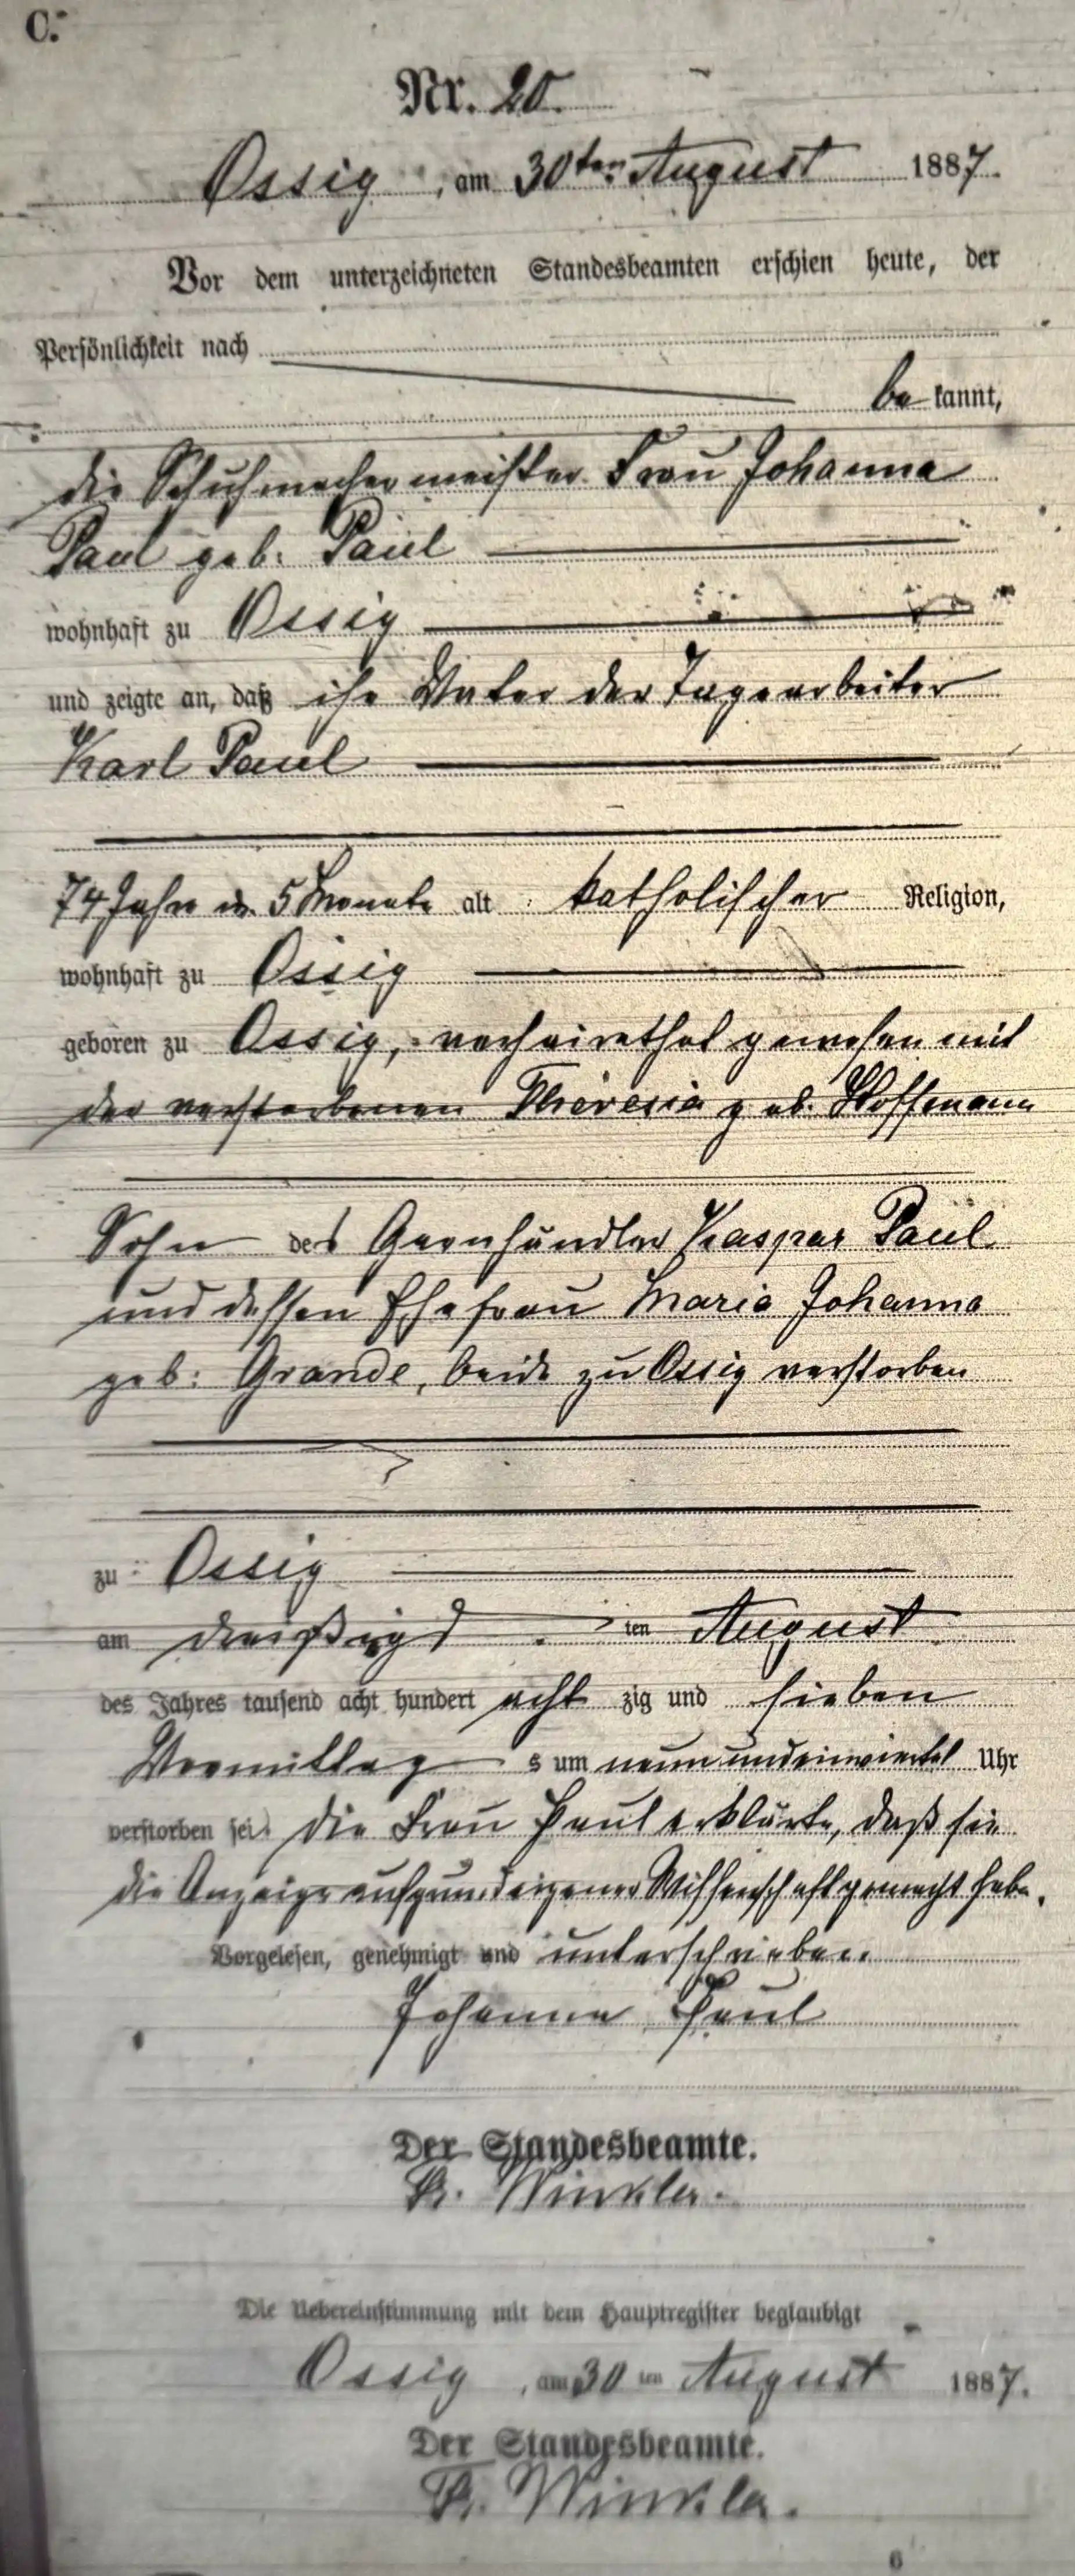 C.
Nr. 20.
Ossig, am 30ten August 1887.
Vor dem unterzeichneten Standesbeamten erschien heute, der
Persönlichkeit nach
be kannt,
die Schuhmachermeister Frau Johanna
Paul geb. Paul
wohnhaft zu Ossig
und zeigte an, daß ihr Vater der Tagearbeiter
Karl Paul
74 Jahre u. 5 Monate alt katholischer Religion,
wohnhaft zu Ossig
geboren zu Ossig, verheirathet gewesen mit
der verstorbenen Theresia geb. Hoffmann
Sohn des Garnhändler Kaspar Paul
und dessen Ehefrau Maria Johanna
geb. Grande, beide zu Ossig verstorben
zu Ossig
am dreißigst ten August
des Jahres tausend acht hundert acht zig und sieben
Vormittag s um neun und einviertel Uhr
verstorben sei. Die Frau Paul erklärte, daß sie
die Anzeige aufgrund eigener Wissenschaft gemacht habe.
Vorgelesen, genehmigt und unterschrieben
Johanna Paul
Der Standesbeamte.
Winkler.
Die Uebereinstimmung mit dem Hauptregister beglaubigt
Ossig, am 30 ten August 1887.
Der Standesbeamte.
Winkler.
6